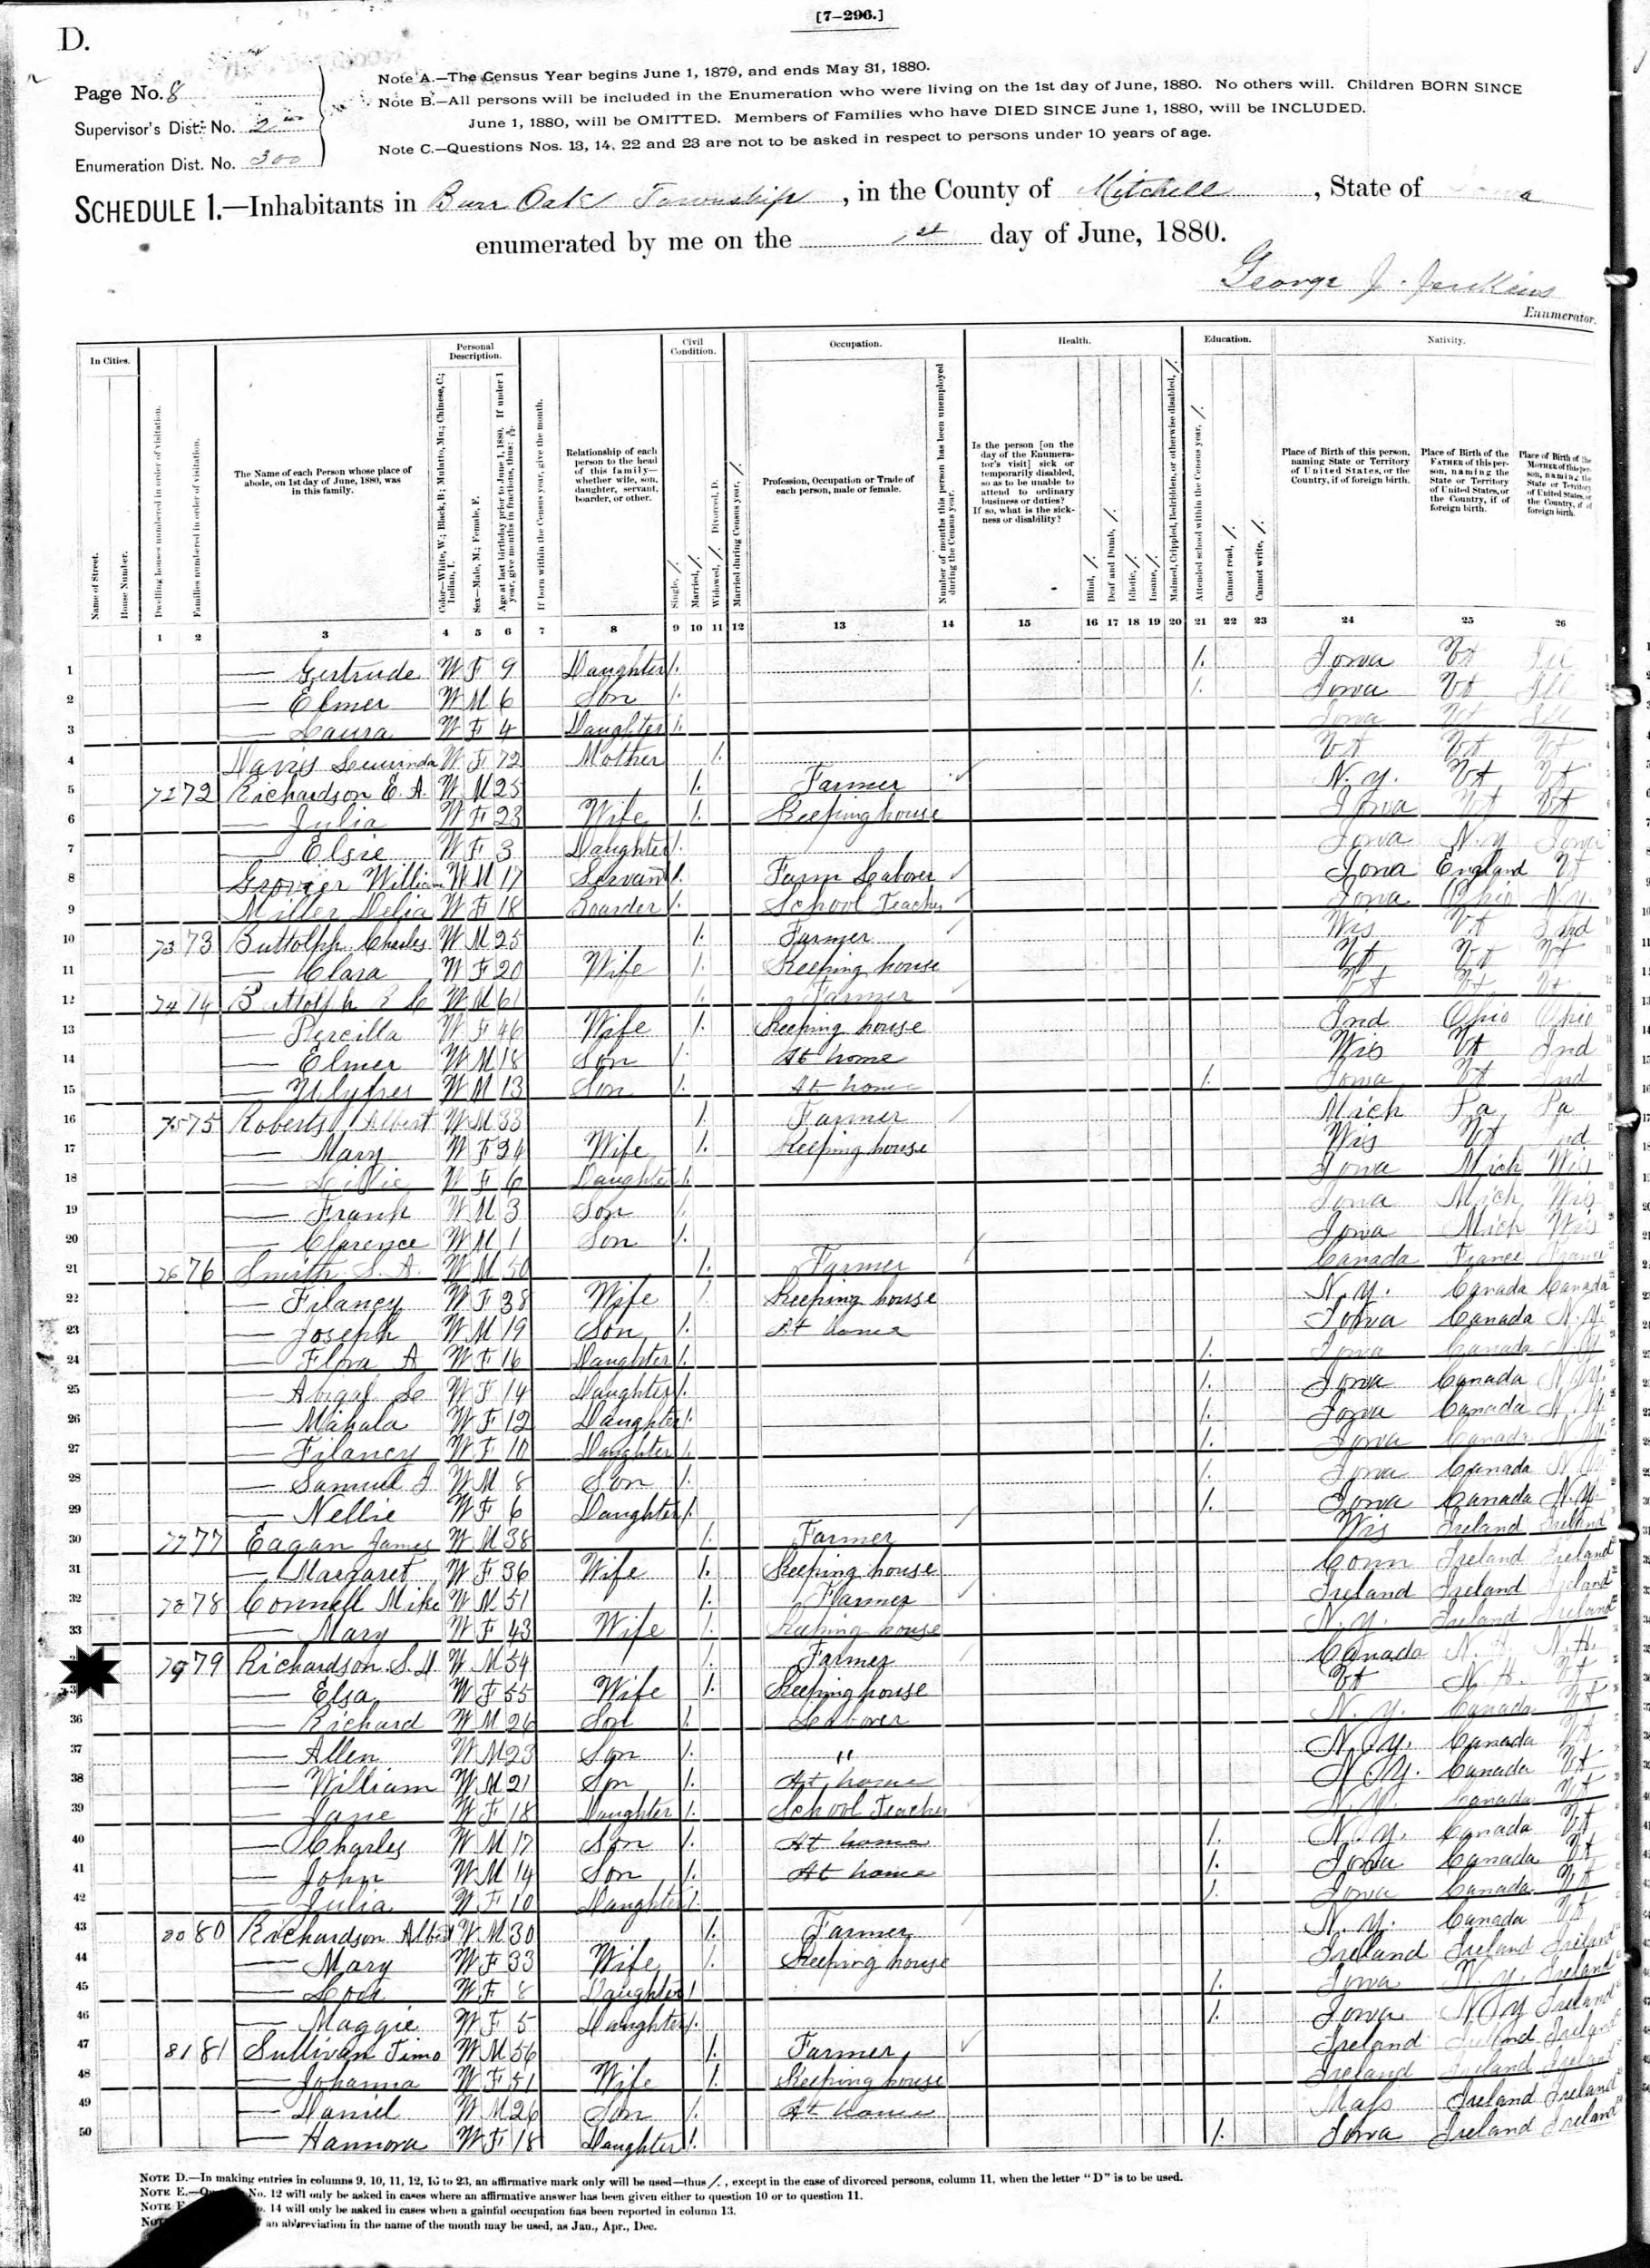 [7-296.]
D.
Page No. 8
Supervisor's Dist. No. 2
Enumeration Dist. No. 300
Note A.—The Census Year begins June 1, 1879, and ends May 31, 1880.
Note B.—All persons will be included in the Enumeration who were living on the 1st day of June, 1880. No others will. Children BORN SINCE
June 1, 1880, will be OMITTED. Members of Families who have DIED SINCE June 1, 1880, will be INCLUDED.
Note C.—Questions Nos. 13, 14, 22 and 23 are not to be asked in respect to persons under 10 years of age.
SCHEDULE 1.—Inhabitants in Burr Oak Township, in the County of Mitchell, State of Iowa
enumerated by me on the 1st day of June, 1880.
George J. Jenkins
Enumerator.
In Cities. Personal Description. Civil Condition. Occupation. Health. Education. Nativity.
Name of Street.
House Number.
Dwelling houses numbered in order of visitation.
Families numbered in order of visitation.
The Name of each Person whose place of abode, on 1st day of June, 1880, was in this family.
Color—White, W.; Black, B.; Mulatto, Mu.; Chinese, C.; Indian, I.
Sex—Male, M.; Female, F.
Age at last birthday prior to June 1, 1880. If under 1 year, give months in fractions, thus: 3/12
If born within the Census year, give the month.
Relationship of each person to the head of this family—whether wife, son, daughter, servant, boarder, or other.
Single, /.
Married, /.
Widowed, /. Divorced, D.
Married during Census year, /.
Profession, Occupation or Trade of each person, male or female.
Number of months this person has been unemployed during the Census year.
Is the person [on the day of the Enumerator's visit] sick or temporarily disabled, so as to be unable to attend to ordinary business or duties? If so, what is the sickness or disability?
Blind, /.
Deaf and Dumb, /.
Idiotic, /.
Insane, /.
Maimed, Crippled, Bedridden, or otherwise disabled, /.
Attended school within the Census year, /.
Cannot read, /.
Cannot write, /.
Place of Birth of this person, naming State or Territory of United States, or the Country, if of foreign birth.
Place of Birth of the FATHER of this person, naming the State or Territory of United States, or the Country, if of foreign birth.
Place of Birth of the MOTHER of this person, naming the State or Territory of United States, or the Country, if of foreign birth.
1 2 3 4 5 6 7 8 9 10 11 12 13 14 15 16 17 18 19 20 21 22 23 24 25 26
1 — Gertrude W F 9 Daughter /. /. Iowa Vt Ill
2 — Elmer W M 6 Son /. /. Iowa Vt Ill
3 — Laura W F 4 Daughter /. Iowa Vt Ill
4 Davis W F 72 Mother /. Vt Vt Vt
5 72 72 Richardson E. A. W M 25 /. Farmer N. Y. Vt Vt
6 — Julia W F 23 Wife /. Keeping house Iowa Vt Vt
7 — Elsie W F 3 Daughter /. Iowa N. Y Iowa
8 William W M 17 Servant /. Farm Laborer Iowa England Vt
9 Miller Delia W F 18 Boarder /. School Teacher Iowa Ohio N. Y.
10 73 73 Buttolph Charles W M 25 /. Farmer Wis Vt Ind
11 — Clara W F 20 Wife /. Keeping house Vt Vt Vt
12 74 74 Buttolph W M 61 /. Farmer Vt Vt Vt
13 — Percilla W F 46 Wife /. Keeping house Ind Ohio Ohio
14 — Elmer W M 18 Son /. At home Wis Vt Ind
15 — Ulysses W M 13 Son /. At home /. Iowa Vt Ind
16 75 75 Roberts Albert W M 33 /. Farmer Mich Pa Pa
17 — Mary W F 24 Wife /. Keeping house Wis Vt Ind
18 — Lillie W F 6 Daughter /. Iowa Mich Wis
19 — Frank W M 3 Son /. Iowa Mich Wis
20 — Clarence W M 1 Son /. Iowa Mich Wis
21 76 76 Smith S. A. W M 50 /. Farmer Canada France France
22 — Filancy W F 38 Wife /. Keeping house N. Y. Canada Canada
23 — Joseph W M 19 Son /. At home Iowa Canada N. Y.
24 — Flora A W F 16 Daughter /. /. Iowa Canada N. Y.
25 — Abigal W F 14 Daughter /. /. Iowa Canada N. Y.
26 — Mahala W F 12 Daughter /. /. Iowa Canada N. Y.
27 — Filancy W F 10 Daughter /. /. Iowa Canada N. Y.
28 — Samuel W M 8 Son /. /. Iowa Canada N. Y.
29 — Nellie W F 6 Daughter /. /. Iowa Canada N. Y.
30 77 77 Eagan James W M 38 /. Farmer Wis Ireland Ireland
31 — Margaret W F 36 Wife /. Keeping house Conn Ireland Ireland
32 78 78 Connell Mike W M 51 /. Farmer Ireland Ireland Ireland
33 — Mary W F 43 Wife /. Keeping house N. Y. Ireland Ireland
79 79 Richardson S. H. W M 54 /. Farmer Canada N. H. N. H.
— Elsa W F 55 Wife /. Keeping house Vt N. H. Vt
36 — Richard W M 26 Son /. Laborer N. Y. Canada Vt
37 — Allen W M 23 Son /. " N. Y. Canada Vt
38 — William W M 21 Son /. At home N. Y. Canada Vt
39 — Jane W F 18 Daughter /. School Teacher N. Y. Canada Vt
40 — Charles W M 17 Son /. At home /. N. Y. Canada Vt
41 — John W M 14 Son /. At home /. Iowa Canada Vt
42 — Julia W F 10 Daughter /. /. Iowa Canada Vt
43 80 80 Richardson Albert W M 30 /. Farmer N. Y. Canada Vt
44 — Mary W F 33 Wife /. Keeping house Ireland Ireland Ireland
45 — W F 8 Daughter /. /. Iowa N. Y. Ireland
46 — Maggie W F 5 Daughter /. /. Iowa N. Y Ireland
47 81 81 Sullivan Timo W M 56 /. Farmer Ireland Ireland Ireland
48 — Johanna W F 51 Wife /. Keeping house Ireland Ireland Ireland
49 — Daniel W M 26 Son /. At home Mass Ireland Ireland
50 — Hannora W F 18 Daughter /. /. Iowa Ireland Ireland
NOTE D.—In making entries in columns 9, 10, 11, 12, 16 to 23, an affirmative mark only will be used—thus /., except in the case of divorced persons, column 11, when the letter "D" is to be used.
NOTE E.—Q No. 12 will only be asked in cases where an affirmative answer has been given either to question 10 or to question 11.
NOTE F o. 14 will only be asked in cases when a gainful occupation has been reported in column 13.
NOT an abbreviation in the name of the month may be used, as Jan., Apr., Dec.